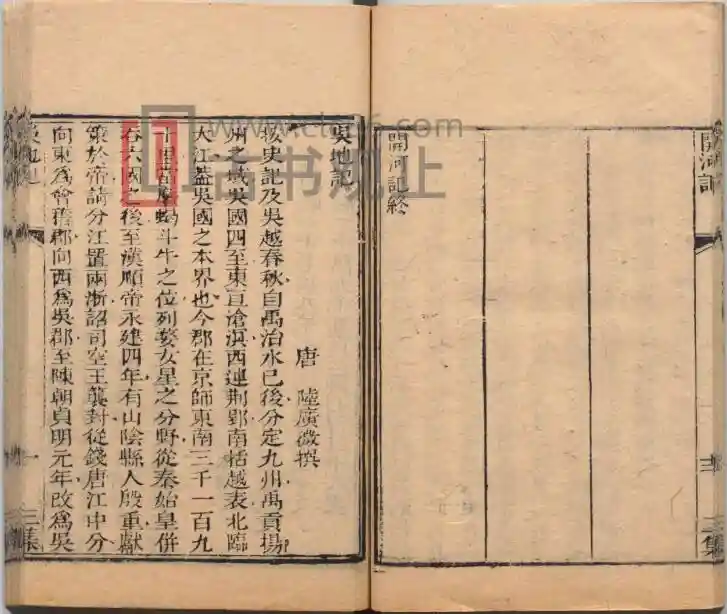 開河記
三集
開河記終
吳地記
唐 陸廣微撰
按史記及吳越春秋自禹治水已後分定九州禹貢揚
州之域吳國四至東亘滄溟西連荆郢南栝越表北臨
大江蓋吳國之本界也今郡在京師東南三千一百九
十里當磨蝎斗牛之位列婺女星之分野從秦始皇併
吞六國之後至漢順帝永建四年有山陰縣人殷重獻
策於帝請分江置兩浙詔司空王龔封從錢唐江中分
向東爲會稽郡向西爲吳郡至陳朝貞明元年改爲吳
吳地記
一
三集